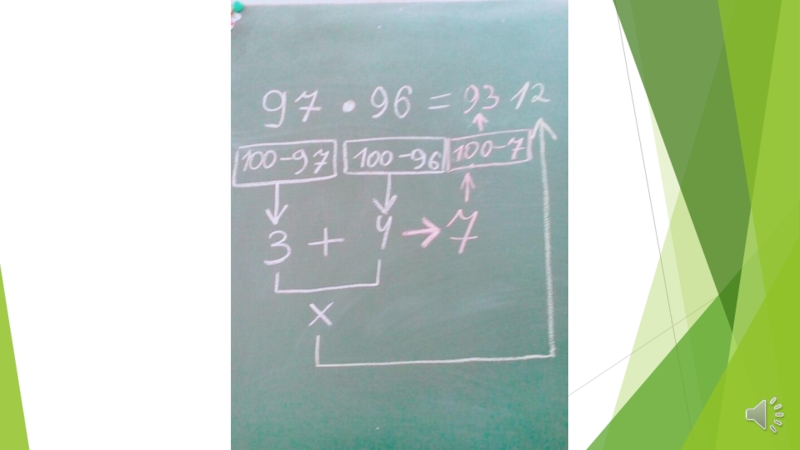 97 • 96 = 93 12
100-97 100-96 100-7
3 + 4 → 7
x